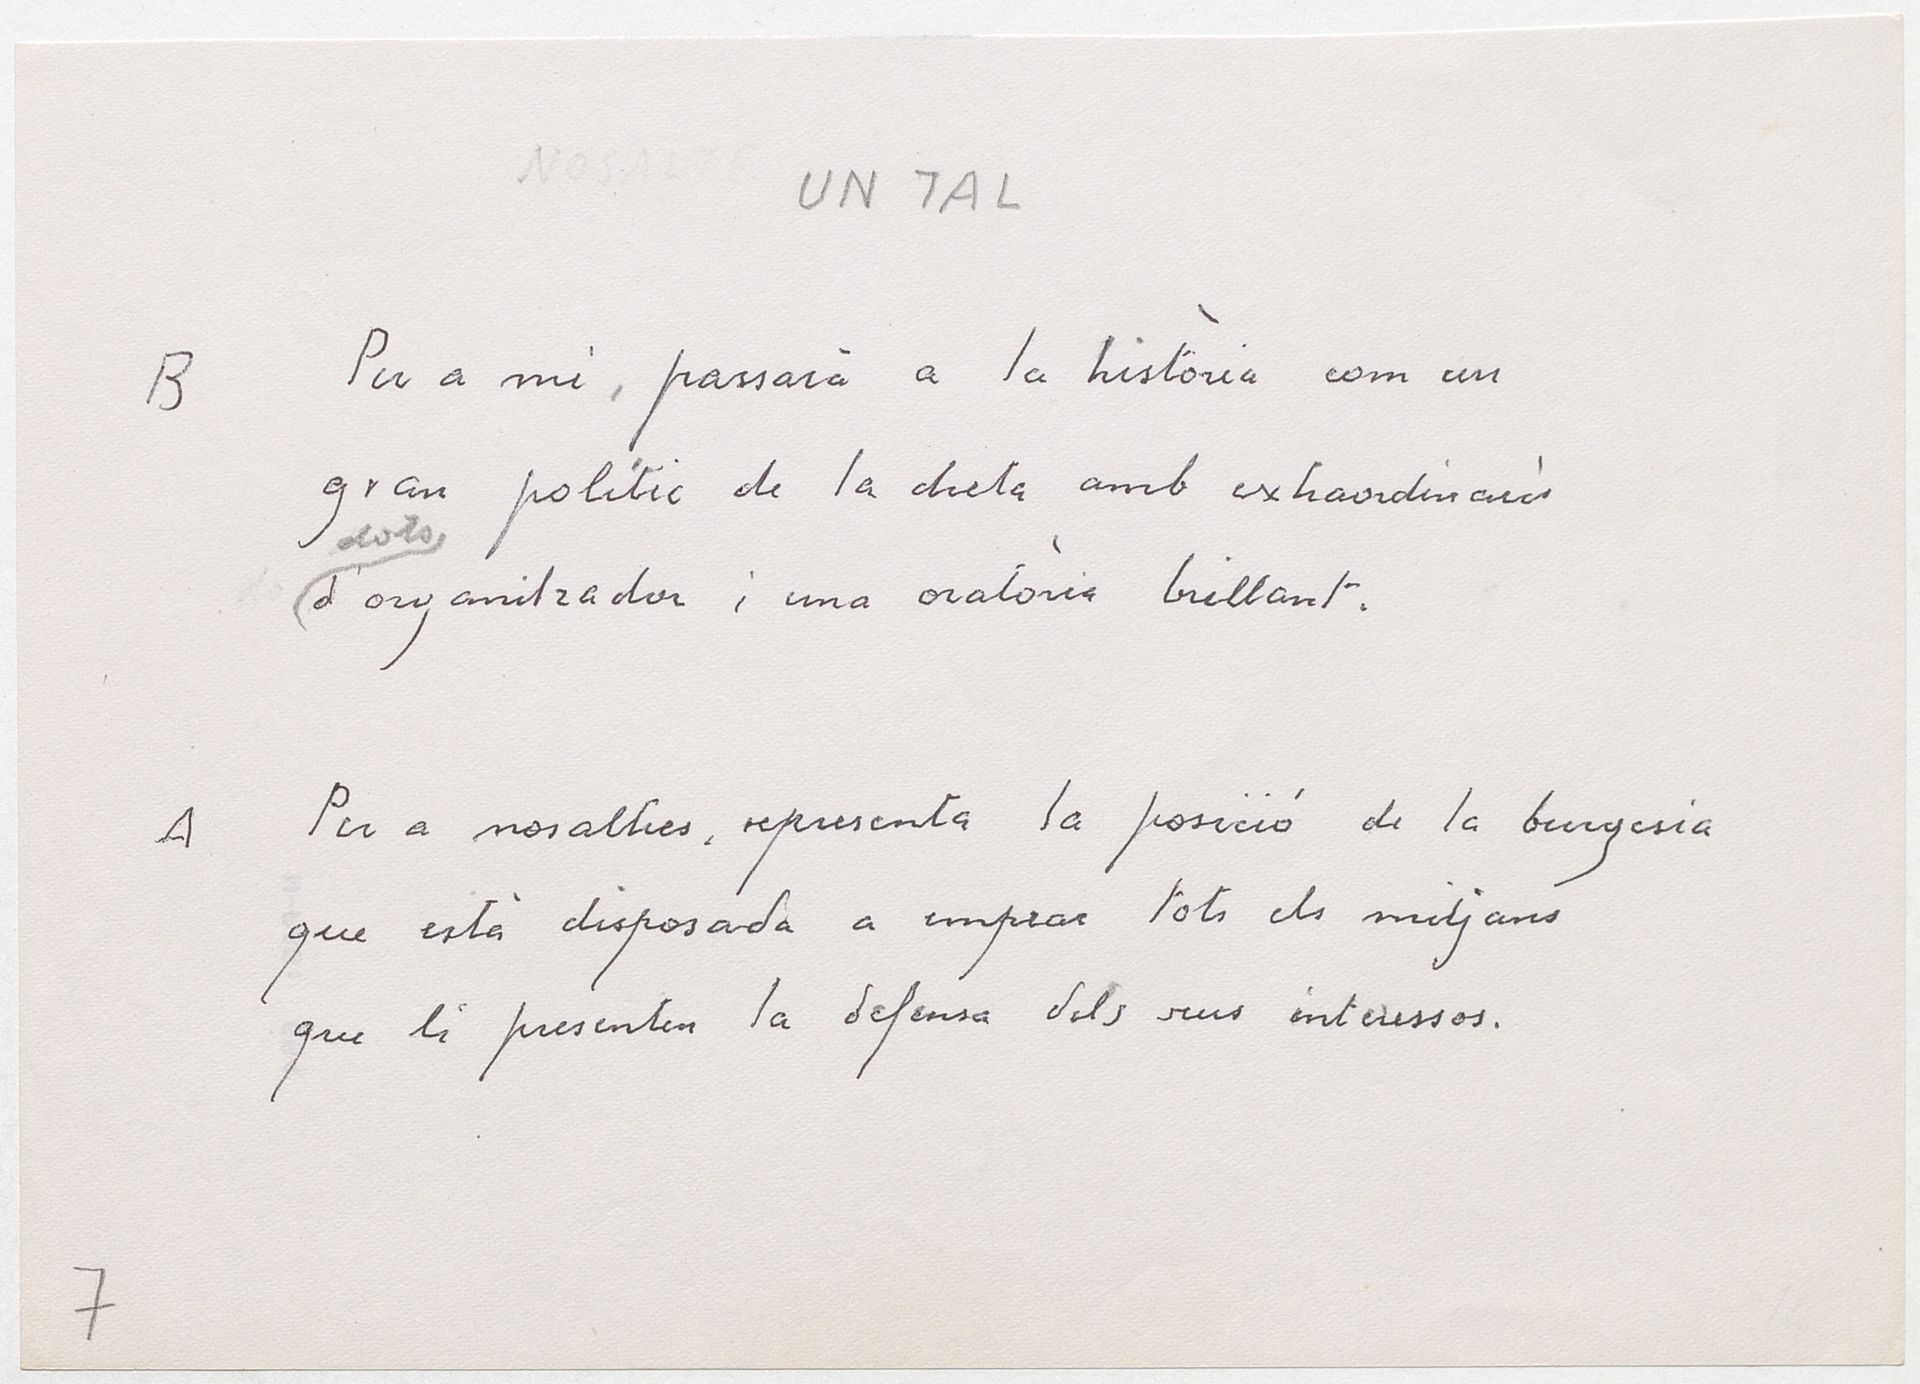 UN TAL
B Per a mi, passarà a la història com un
gran polític de la dreta amb extraordinaris
dots
d'organitzador i una oratòria brillant.
A Per a nosaltres, representa la posició de la burgesia
que està disposada a emprar tots els mitjans
que li presenten la defensa dels seus interessos.
7